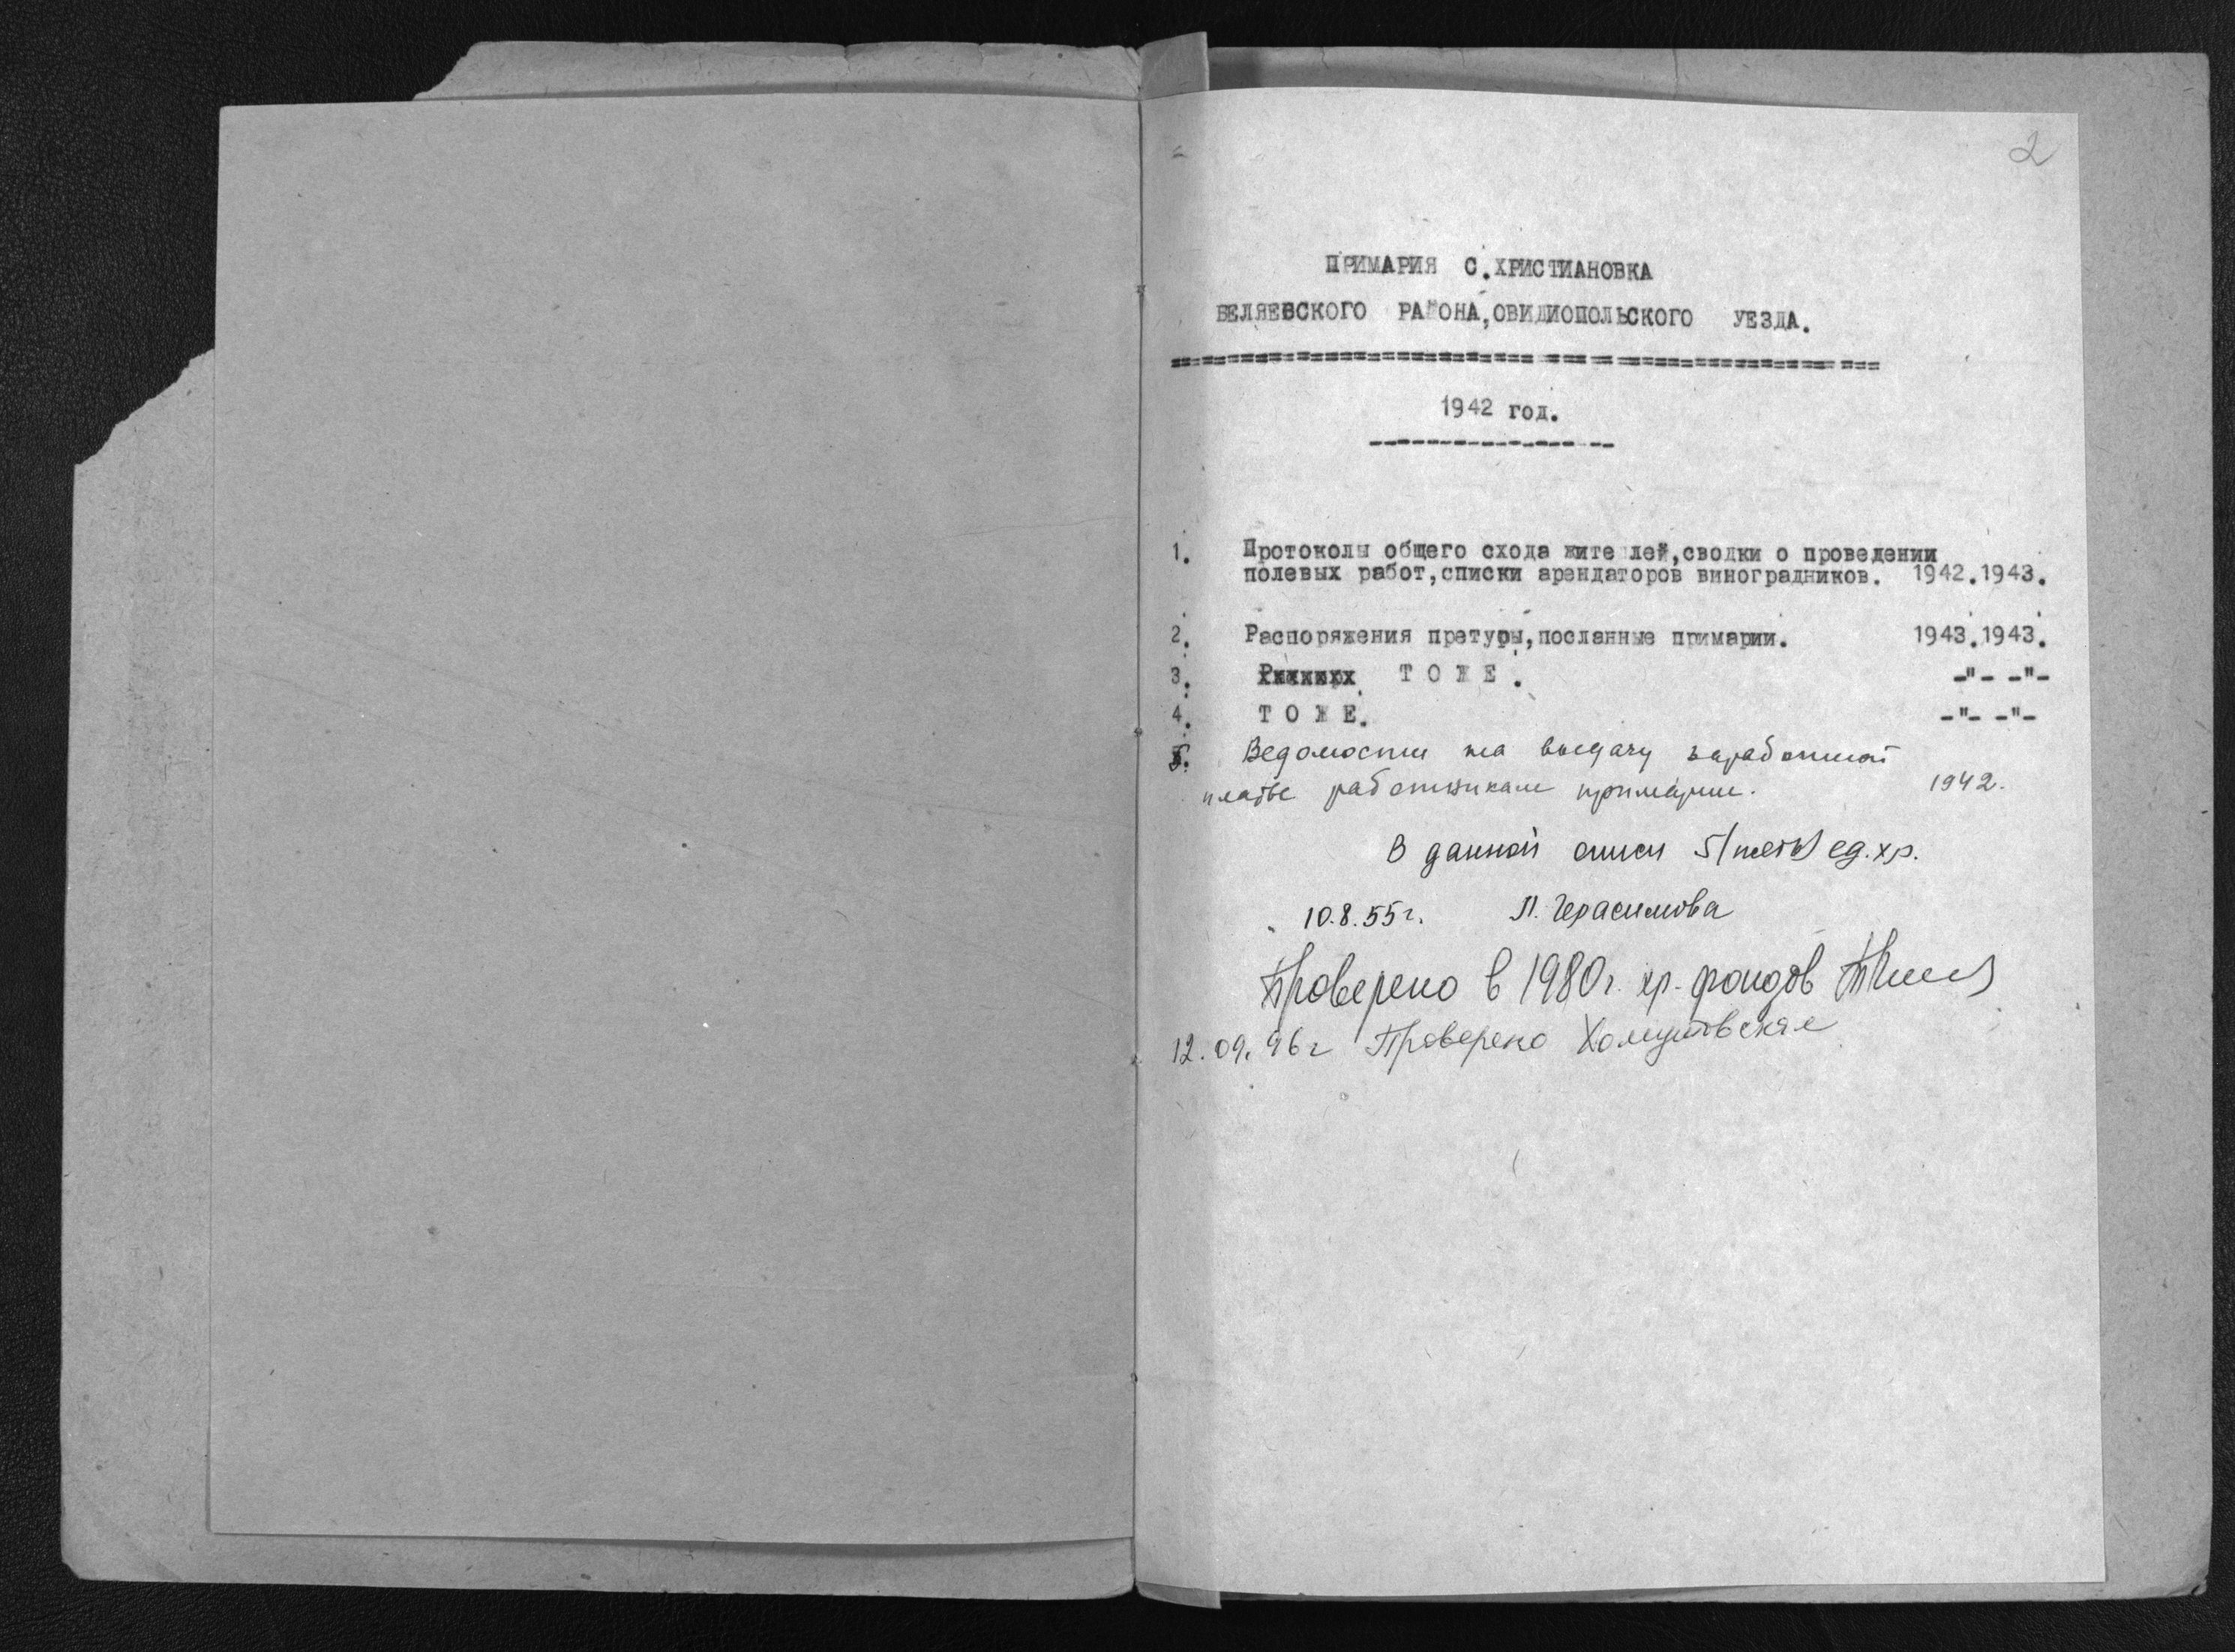 2
ПРИМАРИЯ С.ХРИСТИАНОВКА
БЕЛЯЕВСКОГО РАЙОНА,ОВИДИОПОЛЬСКОГО УЕЗДА.
1942 год.
1. Протоколы общего схода жителей,сводки о проведении
полевых работ,списки арендаторов виноградников. 1942.1943.
2. Распоряжения претуры,посланные примарии. 1943.1943.
3. ТОЖЕ. -"- -"-
4. ТОЖЕ. -"- -"-
5. Ведомости на выдачу заработной
платы работникам примарии. 1942.
В данной описи 5/пять/ ед.хр.
10.8.55г. Л. Герасимова
Проверено в 1980г. хр. фондов
12.09.96г Проверено Хомутовская